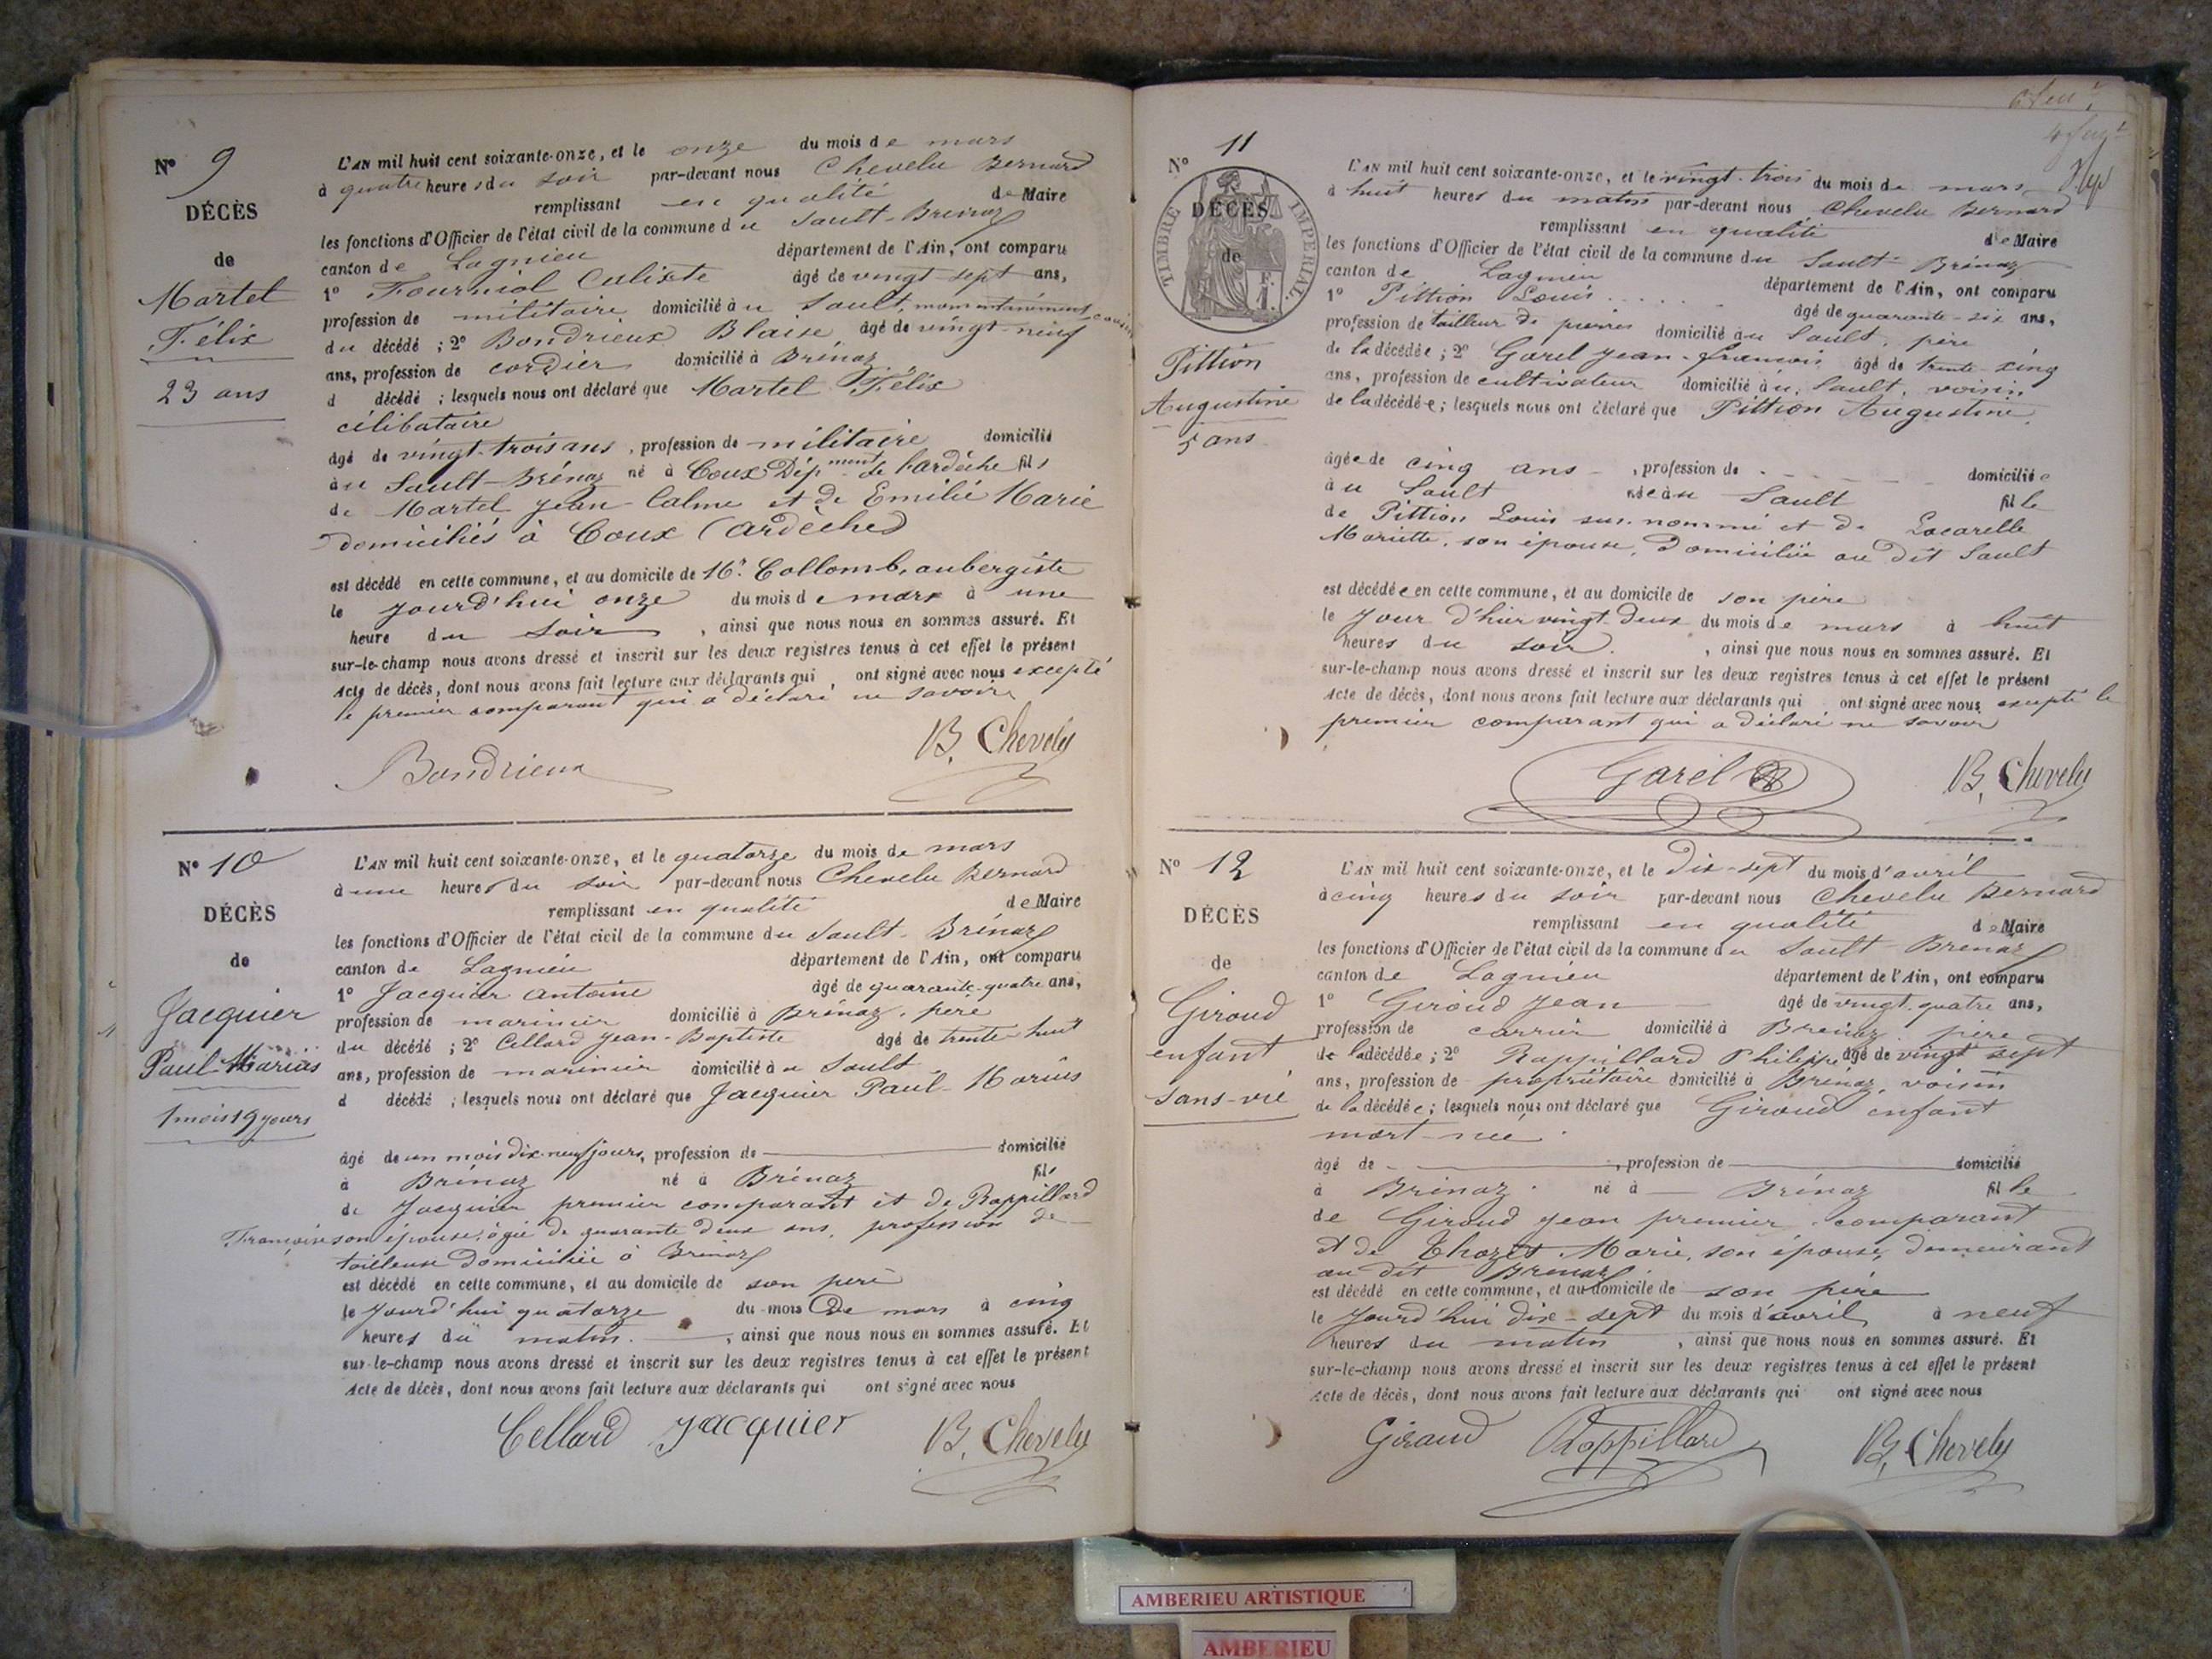 N° 9
DÉCÈS
de
Martel
Félix
23 ans
L'AN mil huit cent soixante-onze, et le onze du mois de mars
à quatre heures du soir par-devant nous Chevelu Bernard
remplissant en qualité de Maire
les fonctions d'Officier de l'état civil de la commune du Sault-Brenaz
canton de Lagnieu département de l'Ain, ont comparu
1° Fourniol Calixte âgé de vingt-sept ans,
profession de militaire domicilié au Sault, momentanément, cousin
du décédé ; 2° Bondrieux Blaise âgé de vingt-neuf
ans, profession de cordier domicilié à Brénaz
d décédé ; lesquels nous ont déclaré que Martel Félix
célibataire
âgé de vingt-trois ans, profession de militaire domicilié
au Sault-Brénaz né à Coux Dépment de l'ardèche fils
de Martel Jean Calme et de Emilie Marie
domiciliés à Coux (ardèche)
est décédé en cette commune, et au domicile de Mr. Collomb, aubergiste
le jourd'hui onze du mois de mars à une
heure du soir, ainsi que nous nous en sommes assuré. Et
sur-le-champ nous avons dressé et inscrit sur les deux registres tenus à cet effet le présent
Acte de décès, dont nous avons fait lecture aux déclarants qui ont signé avec nous excepté
le premier comparant qui a déclaré ne savoir
Bondrieux B. Chevelu
N° 10
DÉCÈS
de
Jacquier
Paul-Marius
1 mois 19 jours
L'AN mil huit cent soixante-onze, et le quatorze du mois de mars
à une heure du soir par-devant nous Chevelu Bernard
remplissant en qualité de Maire
les fonctions d'Officier de l'état civil de la commune du Sault-Brénaz
canton de Lagnieu département de l'Ain, ont comparu
1° Jacquier Antoine âgé de quarante-quatre ans,
profession de marinier domicilié à Brénaz, père
du décédé ; 2° Cellard Jean-Baptiste âgé de trente huit
ans, profession de marinier domicilié au Sault
d décédé ; lesquels nous ont déclaré que Jacquier Paul-Marius
âgé de un mois dix-neuf jours, profession de domicilié
à Brénaz né à Brénaz fils
de Jacquier premier comparant et de Rappillard
Françoise son épouse, âgée de quarante deux ans, profession de
tailleuse domiciliée à Brénaz
est décédé en cette commune, et au domicile de son père
le jourd'hui quatorze du mois de mars à cinq
heures du matin, ainsi que nous nous en sommes assuré. Et
sur-le-champ nous avons dressé et inscrit sur les deux registres tenus à cet effet le présent
Acte de décès, dont nous avons fait lecture aux déclarants qui ont signé avec nous
Cellard Jacquier B. Chevelu
N° 11
TIMBRE IMPERIAL
DÉCÈS
de
Pittion
Augustine
5 ans
L'AN mil huit cent soixante-onze, et le vingt-trois du mois de mars
à huit heures du matin par-devant nous Chevelu Bernard
remplissant en qualité de Maire
les fonctions d'Officier de l'état civil de la commune du Sault-Brénaz
canton de Lagnieu département de l'Ain, ont comparu
1° Pittion Louis âgé de quarante-six ans,
profession de tailleur de pierres domicilié au Sault, père
de la décédée ; 2° Garel Jean-François âgé de trente-cinq
ans, profession de cultivateur domicilié au Sault, voisin
de la décédée ; lesquels nous ont déclaré que Pittion Augustine,
âgée de cinq ans, profession de domiciliée
au Sault née au Sault fille
de Pittion Louis sus-nommé et de Lacarelle
Mariette, son épouse, domiciliée au dit Sault
est décédée en cette commune, et au domicile de son père
le jour d'hier vingt-deux du mois de mars à huit
heures du soir, ainsi que nous nous en sommes assuré. Et
sur-le-champ nous avons dressé et inscrit sur les deux registres tenus à cet effet le présent
Acte de décès, dont nous avons fait lecture aux déclarants qui ont signé avec nous excepté le
premier comparant qui a déclaré ne savoir
Garel B. Chevelu
N° 12
DÉCÈS
de
Giroud
enfant
sans-vie
L'AN mil huit cent soixante-onze, et le dix-sept du mois d'avril
à cinq heures du soir par-devant nous Chevelu Bernard
remplissant en qualité de Maire
les fonctions d'Officier de l'état civil de la commune du Sault-Brenaz
canton de Lagnieu département de l'Ain, ont comparu
1° Giroud Jean âgé de vingt-quatre ans,
profession de carrier domicilié à Brenaz, père
de la décédée ; 2° Rappillard Philippe âgé de vingt sept
ans, profession de propriétaire domicilié à Brénaz, voisin
de la décédée ; lesquels nous ont déclaré que Giroud enfant
mort-née
âgé de , profession de domicilié
à Brénaz né à Brénaz fille
de Giroud Jean premier comparant
et de Thozet Marie, son épouse, demeurant
au dit Brenaz
est décédé en cette commune, et au domicile de son père
le jourd'hui dix-sept du mois d'avril à neuf
heures du matin, ainsi que nous nous en sommes assuré. Et
sur-le-champ nous avons dressé et inscrit sur les deux registres tenus à cet effet le présent
Acte de décès, dont nous avons fait lecture aux déclarants qui ont signé avec nous
Giraud Rappillard B. Chevelu
AMBERIEU ARTISTIQUE
AMBERIEU